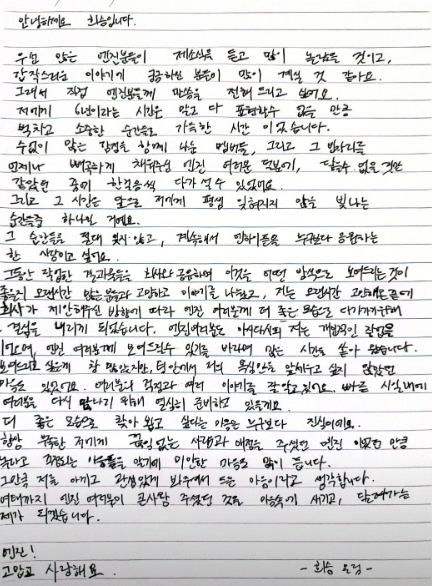 안녕하세요 희승입니다.
우선 많은 엔진분들이 제소식을 듣고 많이 놀랐을 것이고,
갑작스러운 이야기에 궁금하신 분들이 많이 계실 것 같아요.
그래서 직접 엔진분들께 말씀을 전해 드리고 싶어요.
저에게 6년이라는 시간은 말로 다 표현할수 없을 만큼
벅차고 소중한 순간들로 가득한 시간 이었습니다.
수없이 많은 감정을 함께 나눈 멤버들, 그리고 그 빈자리를
언제나 빼곡하게 채워주신 엔진 여러분 덕분에, 닿을수 없을 것만
같았던 꿈에 한걸음씩 다가갈 수 있었어요.
그리고 그 시간은 앞으로 저에게 평생 잊혀지지 않을 빛나는
순간들중 하나일 거예요.
그 순간들을 절대 잊지 않고, 계속해서 엔하이픈을 누구보다 응원하는
한 사람이고 싶어요.
그동안 작업한 결과물들을 회사와 공유하며 이것을 어떤 방식으로 보여드리는 것이
좋을지 오랜시간 많은 분들과 고민하고 이야기를 나눴고, 저는 오랜시간 고민해
회사가 제안해주신 방향에 따라 엔진 여러분께 더 좋은 모습으로 다가가기위해
결정을 내리게 되었습니다. 엔진여러분도 아시다시피 저는 개인적인 작업물
엔진 여러분께 보여드릴수 있기를 바라며 많은 시간을 쏟아 왔습니다.
보여드리고 싶은게 참 많았지만, 팀 안에서 저의 욕심만을 앞세우고 싶지 않았던
마음도 있었어요. 여러분의 걱정과 여러 이야기를 잘 알고있어요. 빠른 시일내에
여러분을 다시 만나기 위해 열심히 준비하고 있을게요.
더 좋은 모습으로 찾아 뵙고 싶다는 마음은 누구보다 진심이에요.
항상 부족한 저에게 끝없는 사랑과 애정을 주셨던 엔진 이었던 만큼
놀라고 걱정되는 마음들을 안기게 미안한 마음도 많이 듭니다.
그만큼 저를 아끼고 관심있게 봐주셔서 드는 마음이라고 생각합니다.
여태까지 엔진 여러분이 큰사랑 주셨던 것을 마음속에 새기고, 달려가는
제가 되겠습니다.
엔진!
고맙고 사랑해요.
- 희승 올림 -